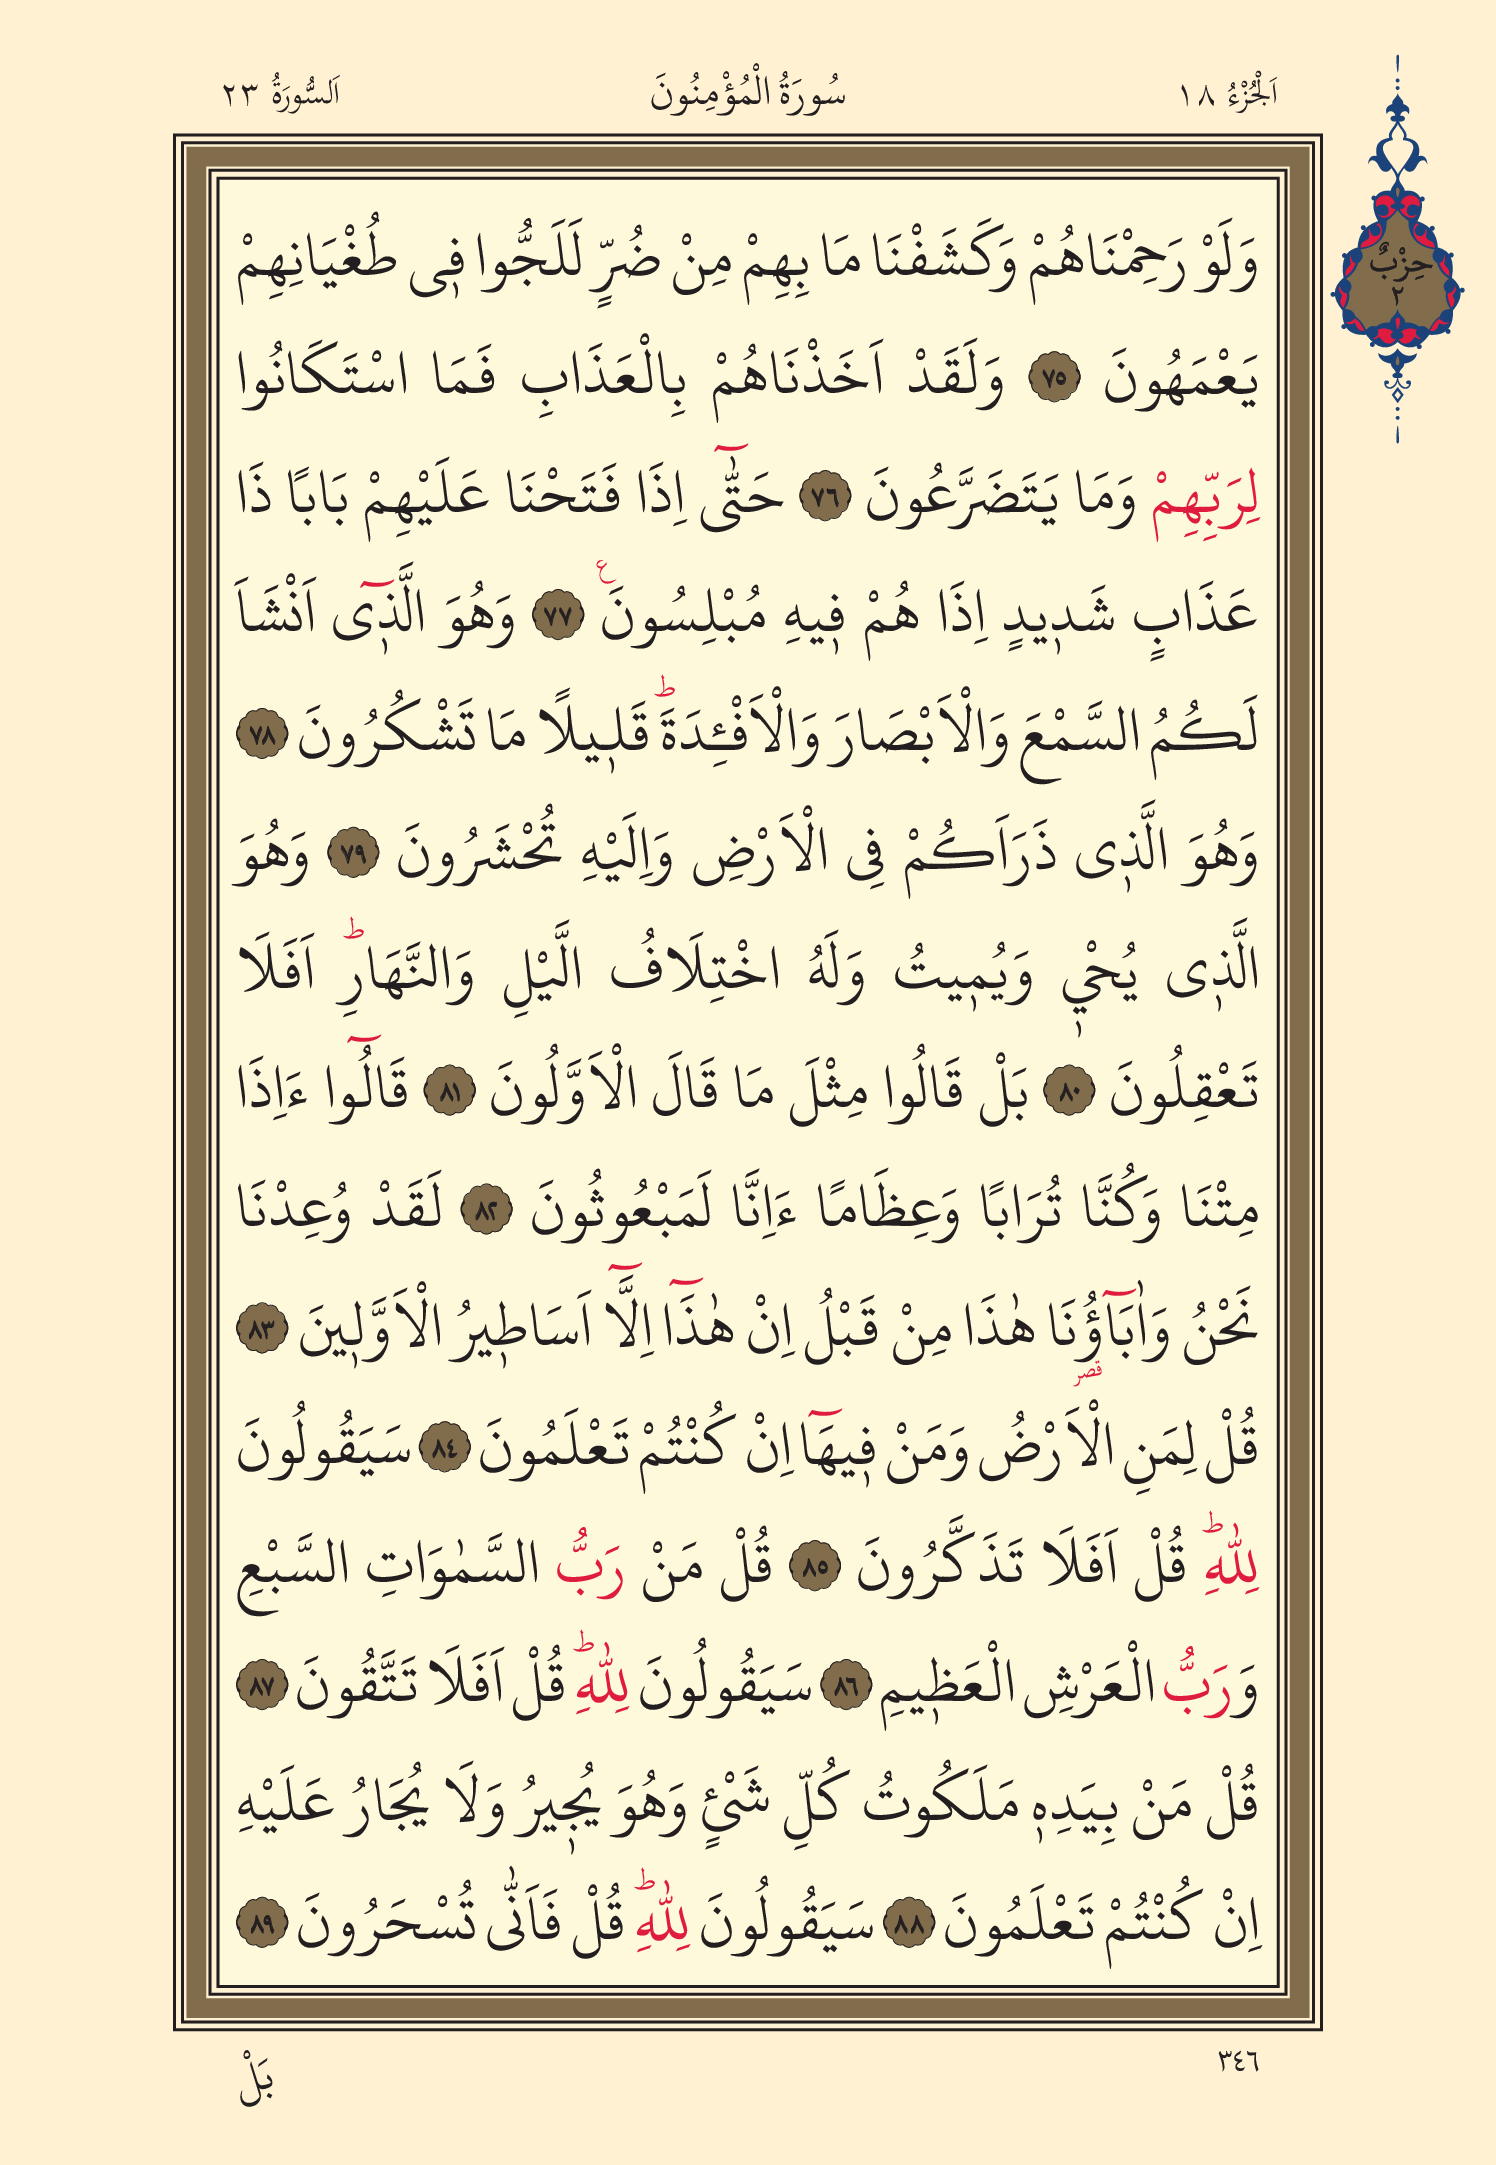 اَلْجُزْءُ ١٨
سُورَةُ الْمُؤْمِنُونَ
اَلسُّورَةُ ٢٣
حِزْبٌ
٢
وَلَوْ رَحِمْنَاهُمْ وَكَشَفْنَا مَا بِهِمْ مِنْ ضُرٍّ لَلَجُّوا ف۪ى طُغْيَانِهِمْ
يَعْمَهُونَ ﴿٧٥﴾ وَلَقَدْ اَخَذْنَاهُمْ بِالْعَذَابِ فَمَا اسْتَكَانُوا
لِرَبِّهِمْ وَمَا يَتَضَرَّعُونَ ﴿٧٦﴾ حَتّٰٓى اِذَا فَتَحْنَا عَلَيْهِمْ بَابًا ذَا
عَذَابٍ شَد۪يدٍ اِذَا هُمْ ف۪يهِ مُبْلِسُونَ ع ﴿٧٧﴾ وَهُوَ الَّذ۪ٓى اَنْشَاَ
لَكُمُ السَّمْعَ وَالْاَبْصَارَ وَالْاَفْـِٔدَةَ ط قَل۪يلًا مَا تَشْكُرُونَ ﴿٧٨﴾
وَهُوَ الَّذ۪ى ذَرَاَكُمْ فِى الْاَرْضِ وَاِلَيْهِ تُحْشَرُونَ ﴿٧٩﴾ وَهُوَ
الَّذ۪ى يُحْي۪ وَيُم۪يتُ وَلَهُ اخْتِلَافُ الَّيْلِ وَالنَّهَارِ ط اَفَلَا
تَعْقِلُونَ ﴿٨٠﴾ بَلْ قَالُوا مِثْلَ مَا قَالَ الْاَوَّلُونَ ﴿٨١﴾ قَالُٓوا ءَاِذَا
مِتْنَا وَكُنَّا تُرَابًا وَعِظَامًا ءَاِنَّا لَمَبْعُوثُونَ ﴿٨٢﴾ لَقَدْ وُعِدْنَا
نَحْنُ وَاٰبَٓاؤُ۬نَا هٰذَا مِنْ قَبْلُ اِنْ هٰذَٓا اِلَّٓا اَسَاط۪يرُ الْاَوَّل۪ينَ ﴿٨٣﴾
قصر
قُلْ لِمَنِ الْاَرْضُ وَمَنْ ف۪يهَٓا اِنْ كُنْتُمْ تَعْلَمُونَ ﴿٨٤﴾ سَيَقُولُونَ
لِلّٰهِ ط قُلْ اَفَلَا تَذَكَّرُونَ ﴿٨٥﴾ قُلْ مَنْ رَبُّ السَّمٰوَاتِ السَّبْعِ
وَرَبُّ الْعَرْشِ الْعَظ۪يمِ ﴿٨٦﴾ سَيَقُولُونَ لِلّٰهِ ط قُلْ اَفَلَا تَتَّقُونَ ﴿٨٧﴾
قُلْ مَنْ بِيَدِه۪ مَلَكُوتُ كُلِّ شَىْءٍ وَهُوَ يُج۪يرُ وَلَا يُجَارُ عَلَيْهِ
اِنْ كُنْتُمْ تَعْلَمُونَ ﴿٨٨﴾ سَيَقُولُونَ لِلّٰهِ ط قُلْ فَاَنّٰى تُسْحَرُونَ ﴿٨٩﴾
٣٤٦
بَلْ